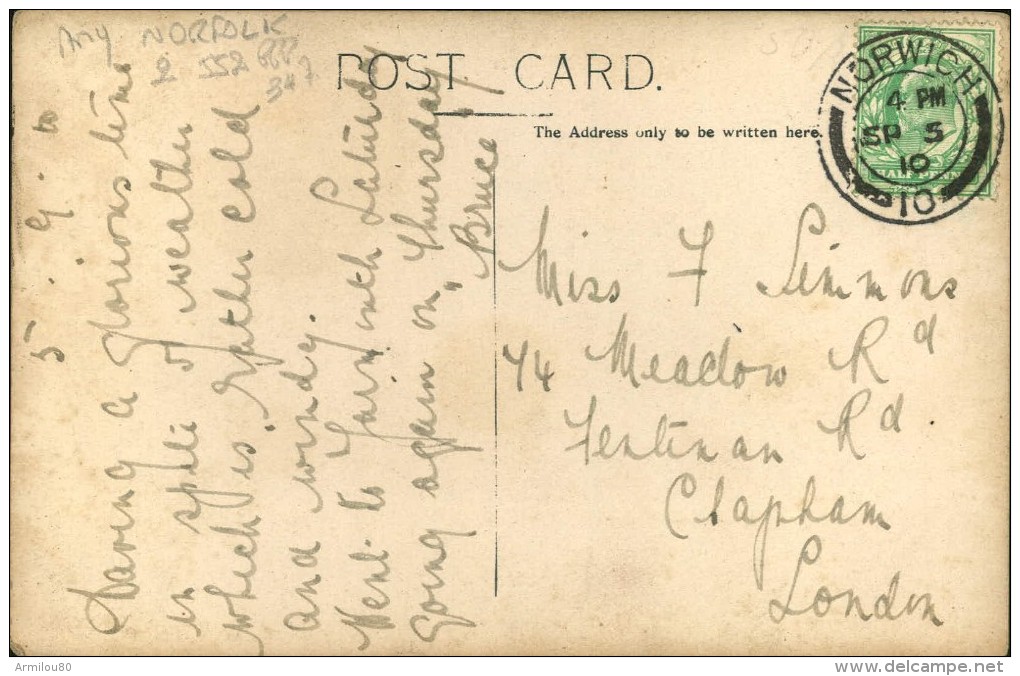 Any NORFOLK
2 552
347
POST CARD.
The Address only to be written here.
NORWICH
4 PM
SP 5
10
10
HALF PENNY
5. 9. 10
Having a glorious time
in spite of weather
which is rather cold
and windy.
Went to Yarmouth Saturday
going again on Thursday
Bruce
Miss F Simmons
74 Meadow Rd
Fentiman Rd
Clapham
London
Armilou80
www.delcampe.net